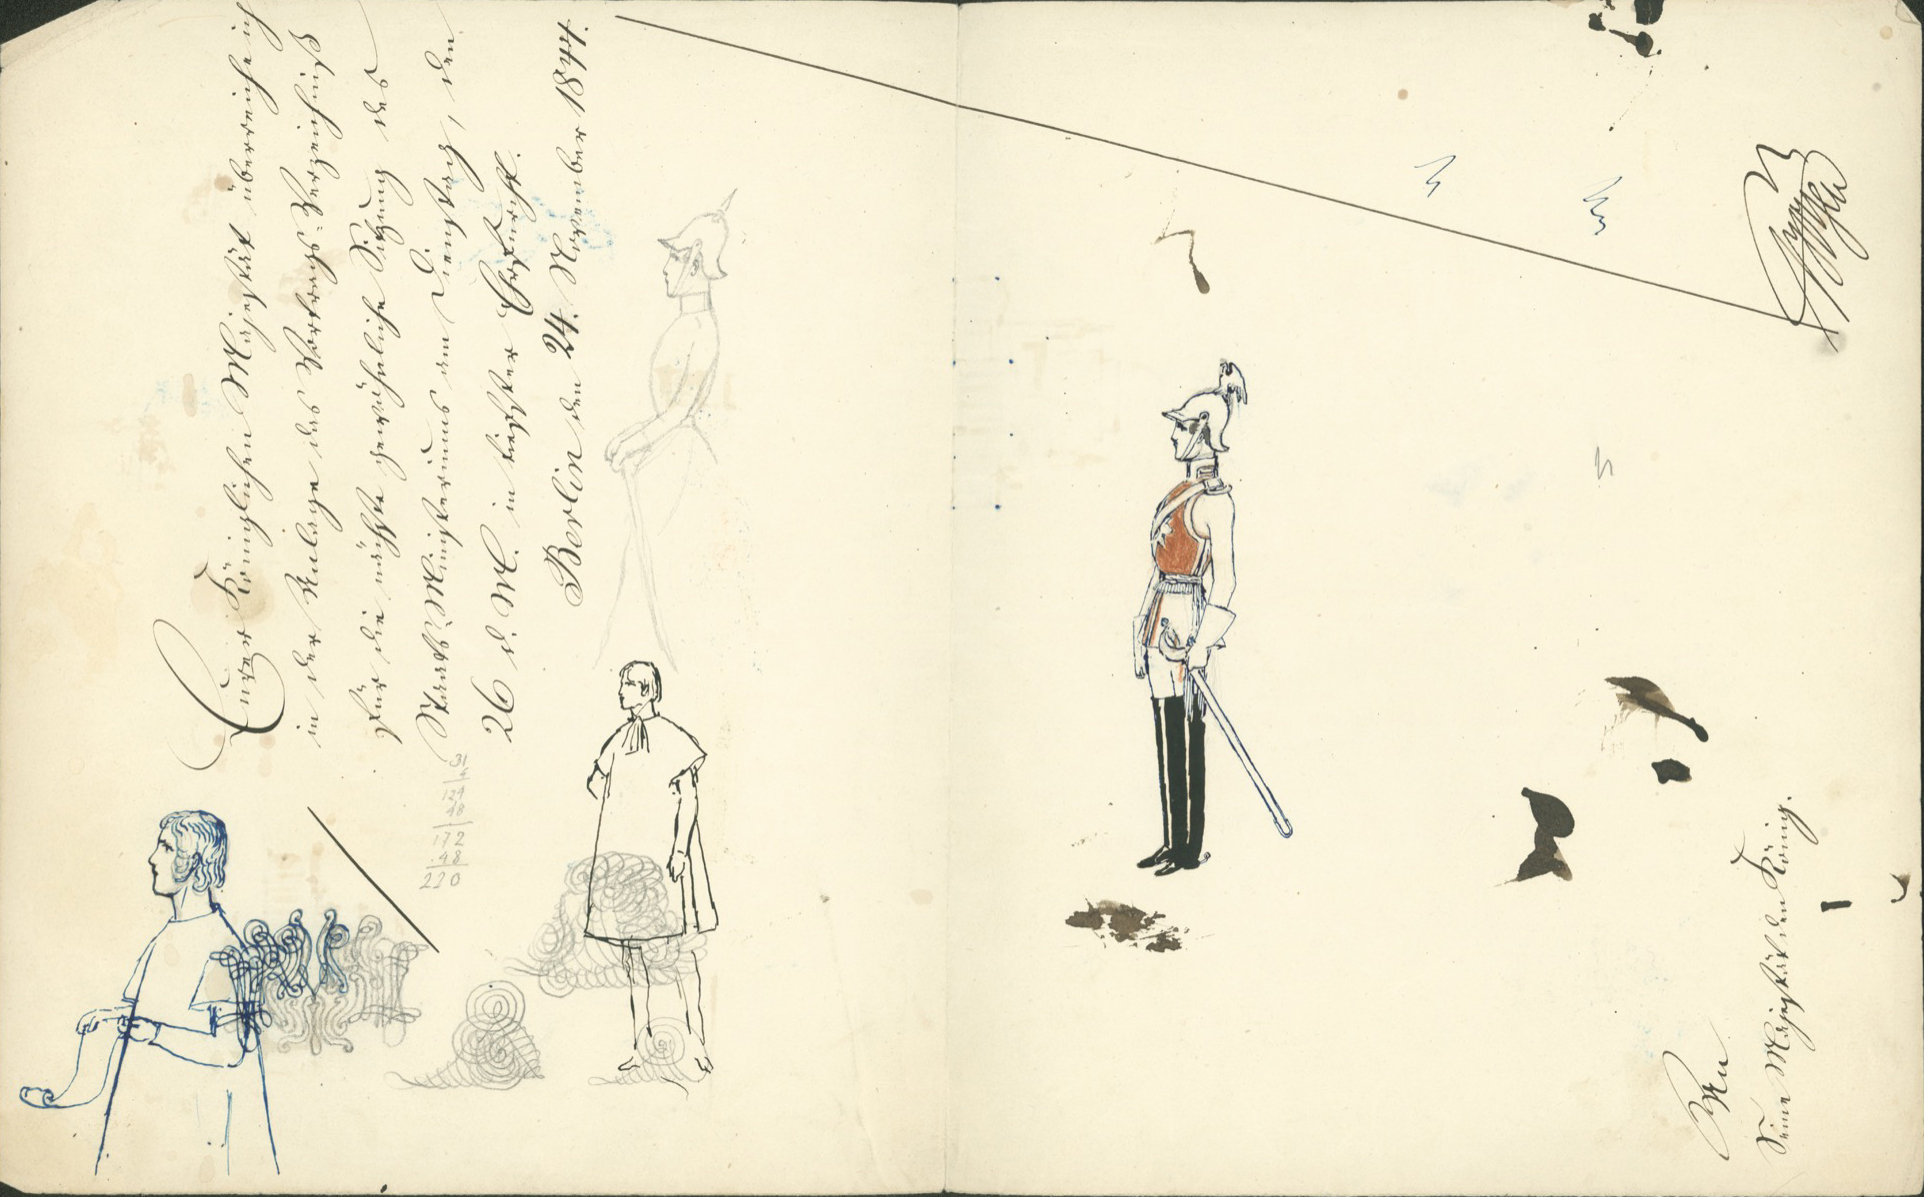 Eurer Königlichen Majestät überreiche ich
in der Anlage das Vortrags-Verzeichniß
für die nächste gewöhnliche Sitzung des
Staats-Ministeriums am Dienstag, den
26 d. M. in tiefster Ehrfurcht.
Berlin den 24. November 1844.
An
Seine Majestät den König.
31
4
124
48
172
48
220